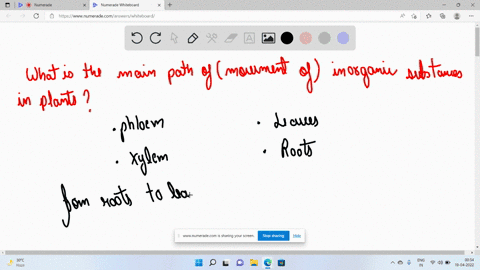 Numerade
Numerade Whiteboard
https://www.numerade.com/answers/whiteboard/
What is the main path of (movement of) inorganic substances
in plants?
• phloem
• Leaves
• Xylem
• Roots
from roots to lea
www.numerade.com is sharing your screen.
Stop sharing
Hide
30°C
Haze
ENG
IN
00:34
16-04-2022